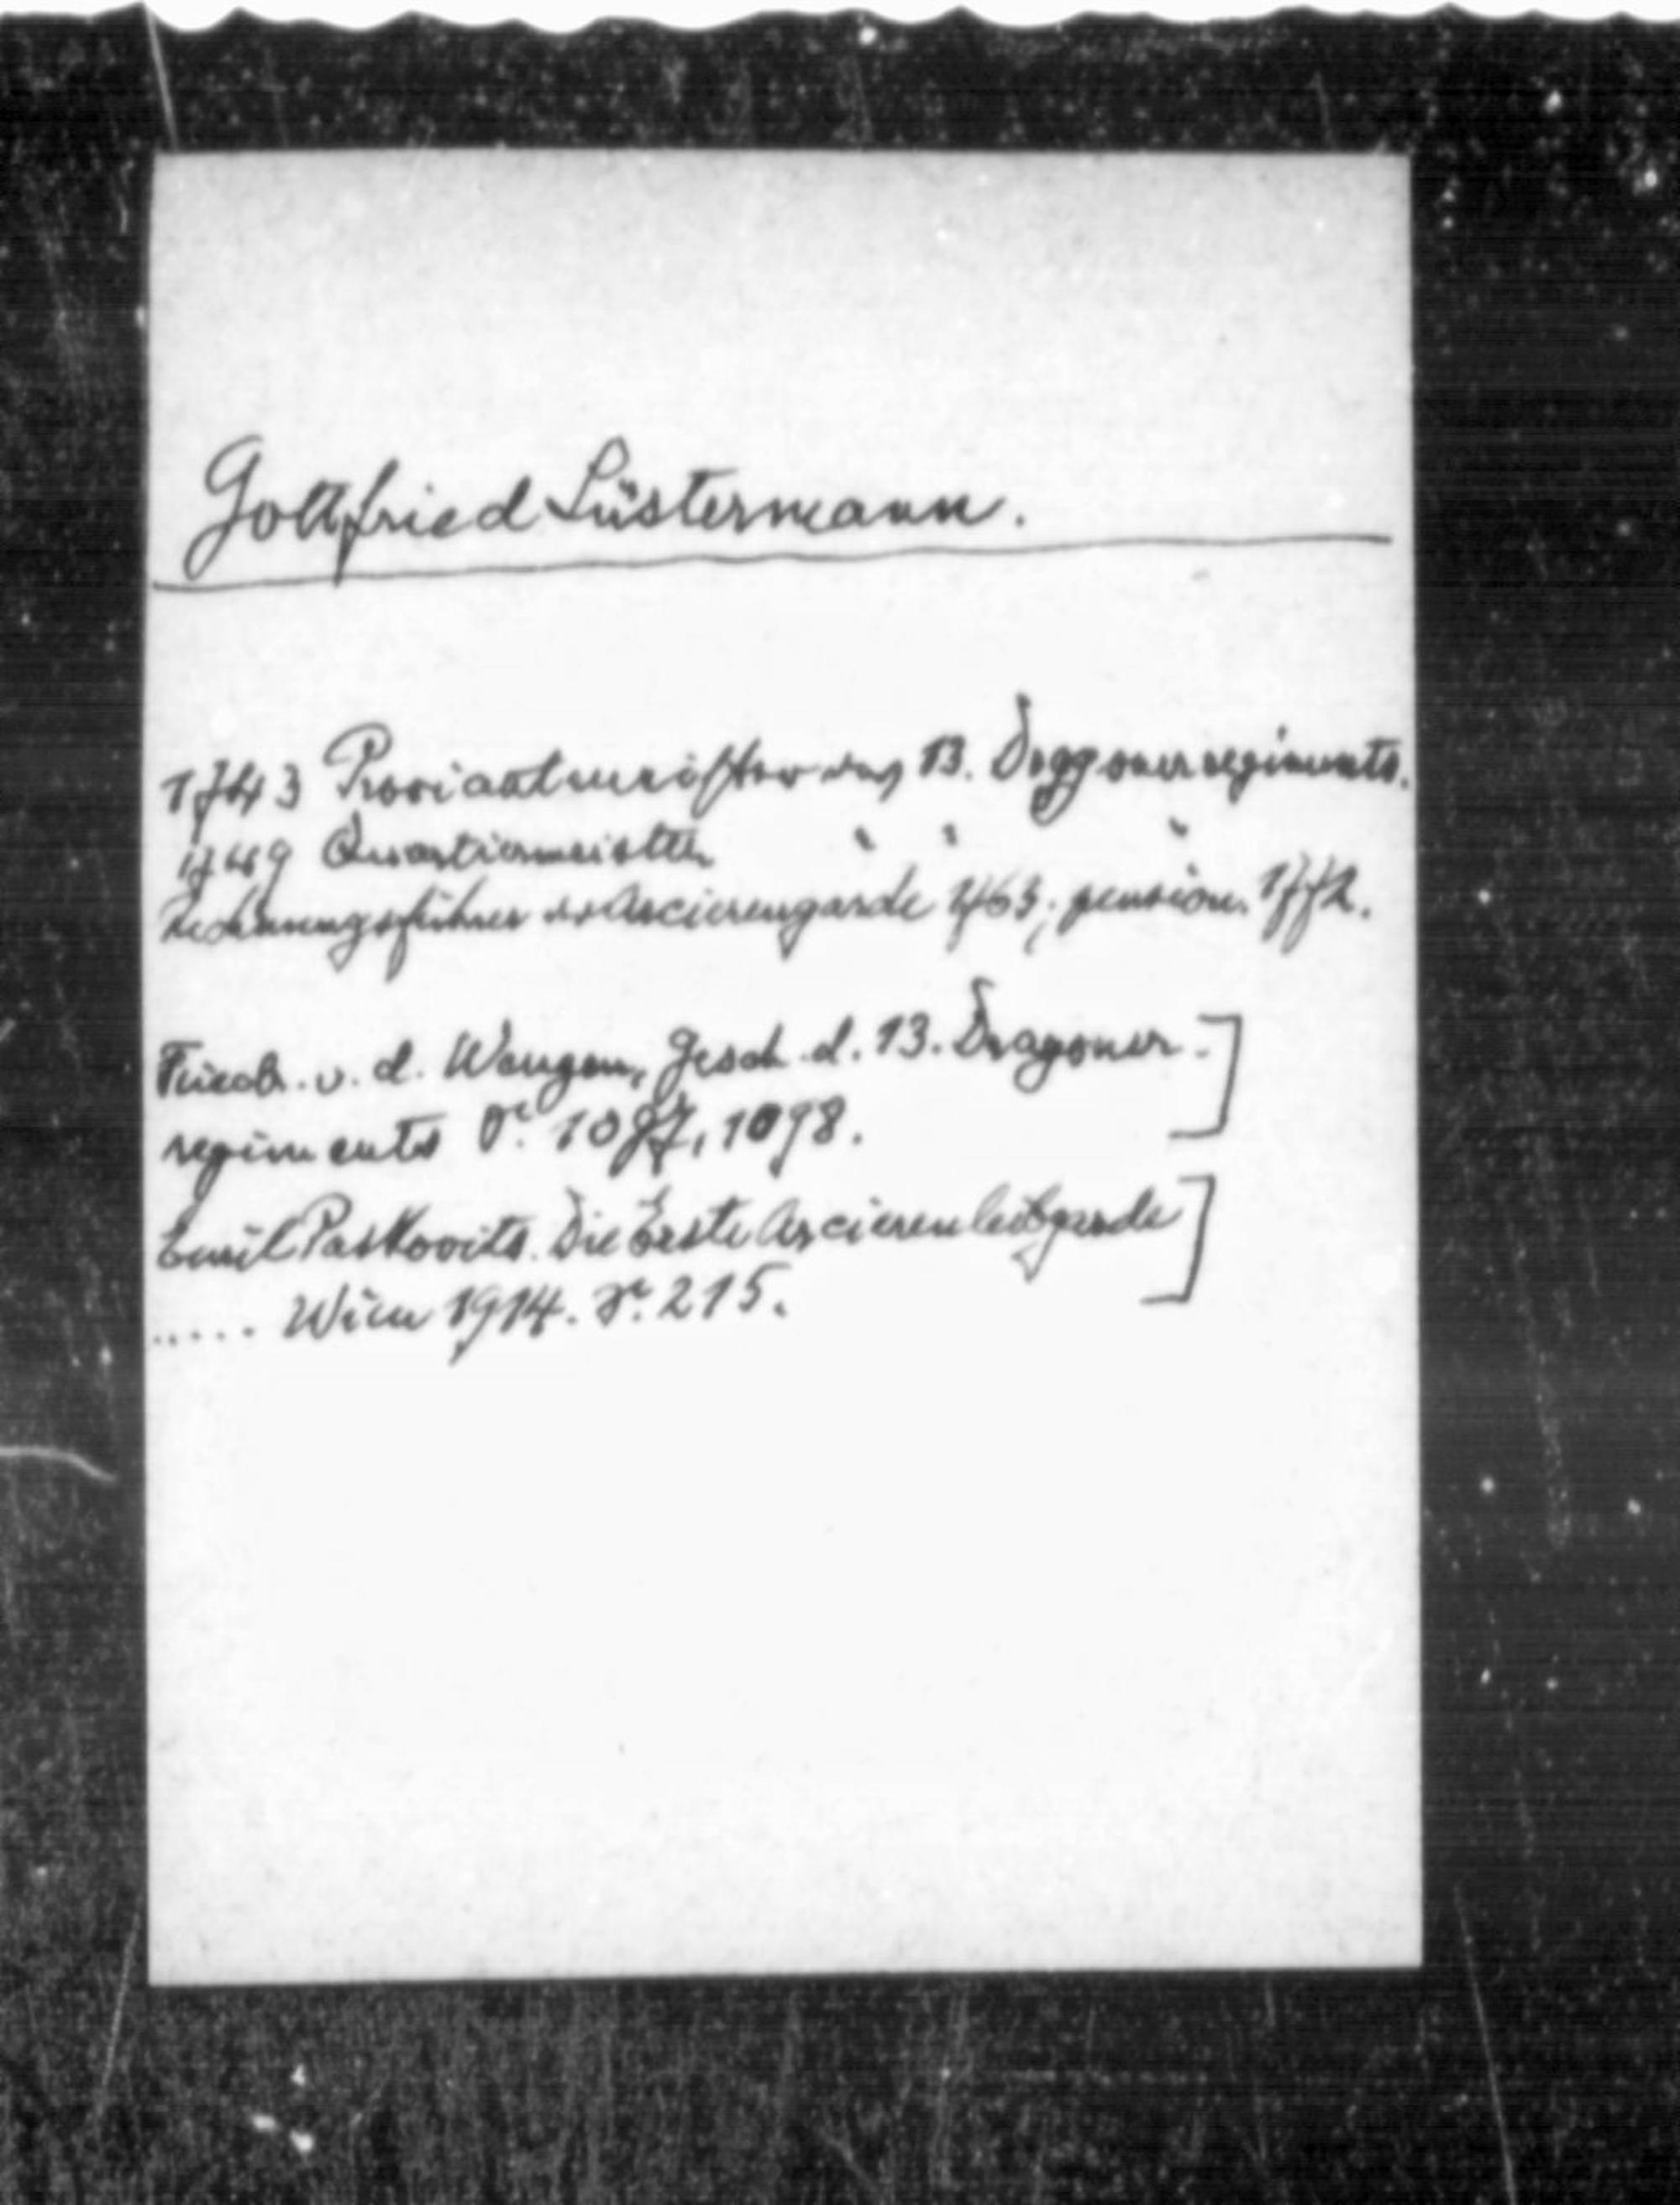 Gottfried Lüstermann.
1743 Proviantmeister des 13. Dragonerregiments.
1749 Quartiermeister " " "
Rechnungsführer der Arcierengarde 1763; pension. 1772.
Friedr. v. d. Wengen, Gesch. d. 13. Dragoner-]
regiments S. 1097, 1098.
Emil Paskovits. Die Erste Arcierenleibgarde]
..... Wien 1914. S. 215.